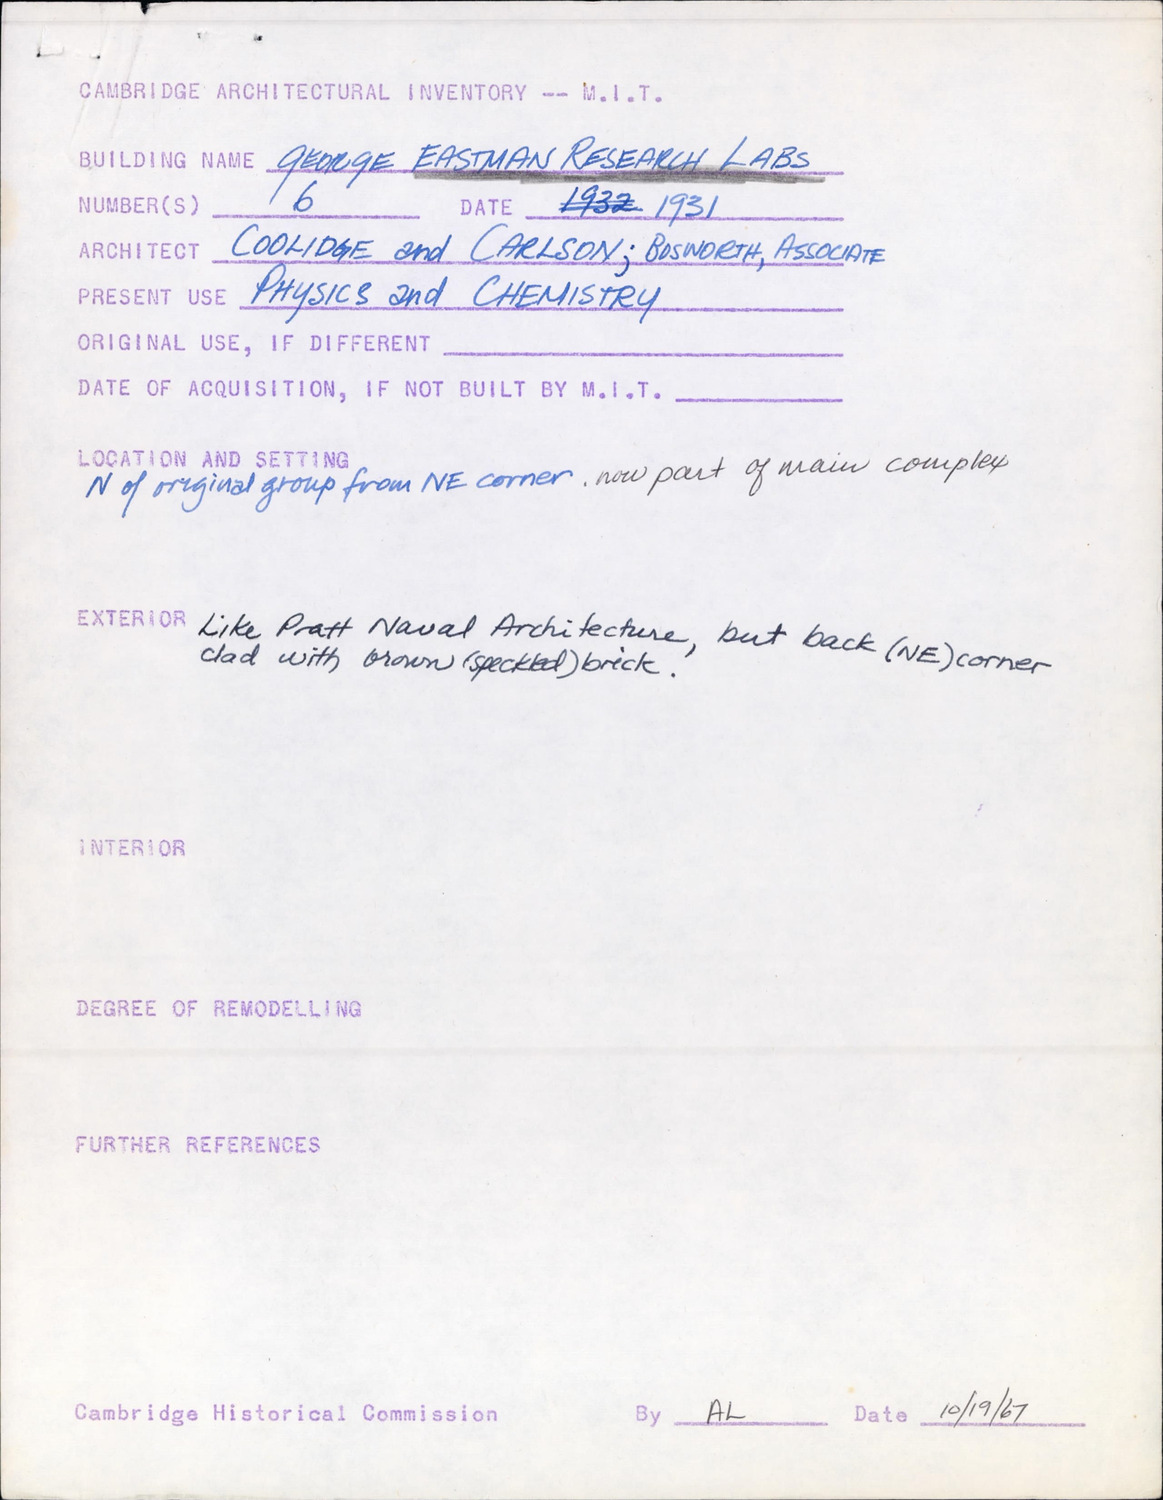 CAMBRIDGE ARCHITECTURAL INVENTORY -- M.I.T.
BUILDING NAME GEORGE EASTMAN RESEARCH LABS
NUMBER(S) 6 DATE 1932 1931
ARCHITECT COOLIDGE and CARLSON; BOSWORTH, ASSOCIATE
PRESENT USE PHYSICS and CHEMISTRY
ORIGINAL USE, IF DIFFERENT
DATE OF ACQUISITION, IF NOT BUILT BY M.I.T.
LOCATION AND SETTING
N of original group from NE corner. now part of main complex
EXTERIOR Like Pratt Naval Architecture, but back (NE) corner
clad with brown (speckled) brick.
INTERIOR
DEGREE OF REMODELLING
FURTHER REFERENCES
Cambridge Historical Commission By AL Date 10/19/67